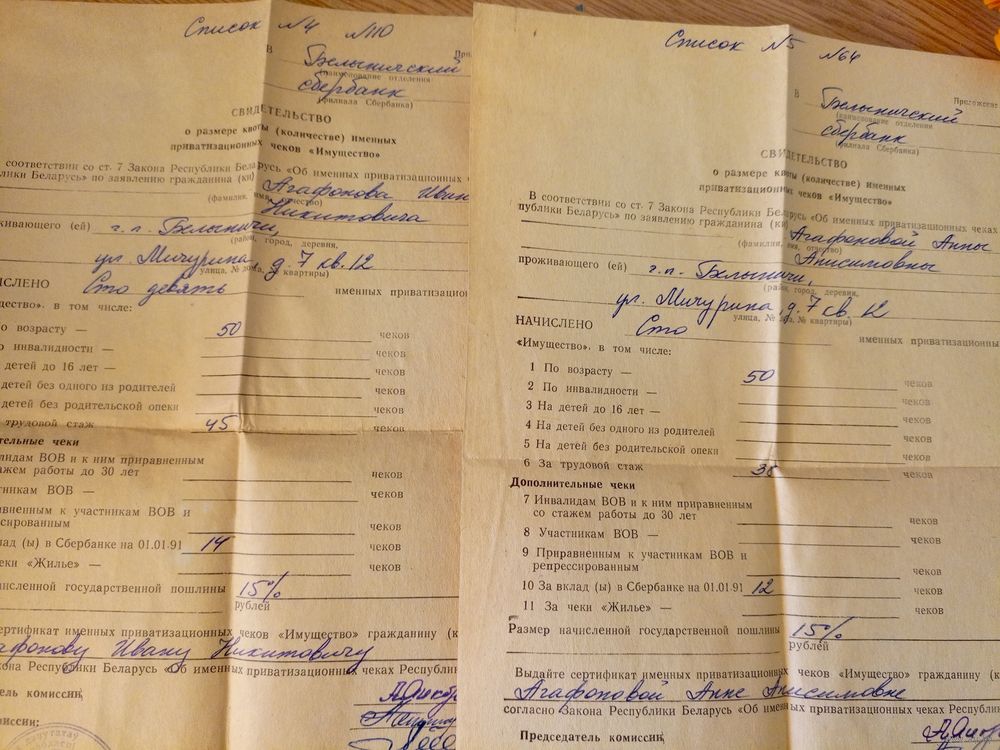 Список №4 №110
В Белыничский
(наименование отделения
сбербанк
(филиала Сбербанка)
СВИДЕТЕЛЬСТВО
о размере квоты (количестве) именных
приватизационных чеков «Имущество»
соответствии со ст. 7 Закона Республики Беларусь «Об именных приватизационных
лики Беларусь» по заявлению гражданина (ки) Агафонова Иван
(фамилия, имя, отчество)
Никитовича
оживающего (ей) г.п. Белыничи,
(район, город, деревня,
ул. Мичурина, д. 7 кв. 12
улица, № дома, № квартиры)
ИСЛЕНО Сто девять именных приватизацион
щество», в том числе:
о возрасту — 50 чеков
о инвалидности — чеков
детей до 16 лет — чеков
детей без одного из родителей чеков
детей без родительской опеки чеков
трудовой стаж 45 чеков
тельные чеки
лидам ВОВ и к ним приравненным
ажем работы до 30 лет чеков
тникам ВОВ — чеков
авненным к участникам ВОВ и
ссированным чеков
лад (ы) в Сбербанке на 01.01.91 14 чеков
еки «Жилье» — чеков
исленной государственной пошлины 15%
рублей
сертификат именных приватизационных чеков «Имущество» гражданину (к
афонову Ивану Никитовичу
кона Республики Беларусь «Об именных приватизационных чеках Республи
атель комиссии,
миссии:
Список №5 №64
Приложени
В Белыничский
(наименование отделения
сбербанк
(филиала Сбербанка)
СВИДЕТЕЛЬСТВО
о размере квоты (количестве) именных
приватизационных чеков «Имущество»
В соответствии со ст. 7 Закона Республики Беларусь «Об именных приватизационных чеках
публики Беларусь» по заявлению гражданина (ки) Агафоновой Анны
(фамилия, имя, отчество)
Анисимовны
проживающего (ей) г.п. Белыничи,
(район, город, деревня,
ул. Мичурина, д. 7 кв. 12
улица, № дома, № квартиры)
НАЧИСЛЕНО Сто именных приватизационны
«Имущество», в том числе:
1 По возрасту — 50 чеков
2 По инвалидности — чеков
3 На детей до 16 лет — чеков
4 На детей без одного из родителей чеков
5 На детей без родительской опеки чеков
6 За трудовой стаж 38 чеков
Дополнительные чеки
7 Инвалидам ВОВ и к ним приравненным
со стажем работы до 30 лет чеков
8 Участникам ВОВ — чеков
9 Приравненным к участникам ВОВ и
репрессированным чеков
10 За вклад (ы) в Сбербанке на 01.01.91 12 чеков
11 За чеки «Жилье» — чеков
Размер начисленной государственной пошлины 15%
рублей
Выдайте сертификат именных приватизационных чеков «Имущество» гражданину (к
Агафоновой Анне Анисимовне
согласно Закона Республики Беларусь «Об именных приватизационных чеках Республи
Председатель комиссии,